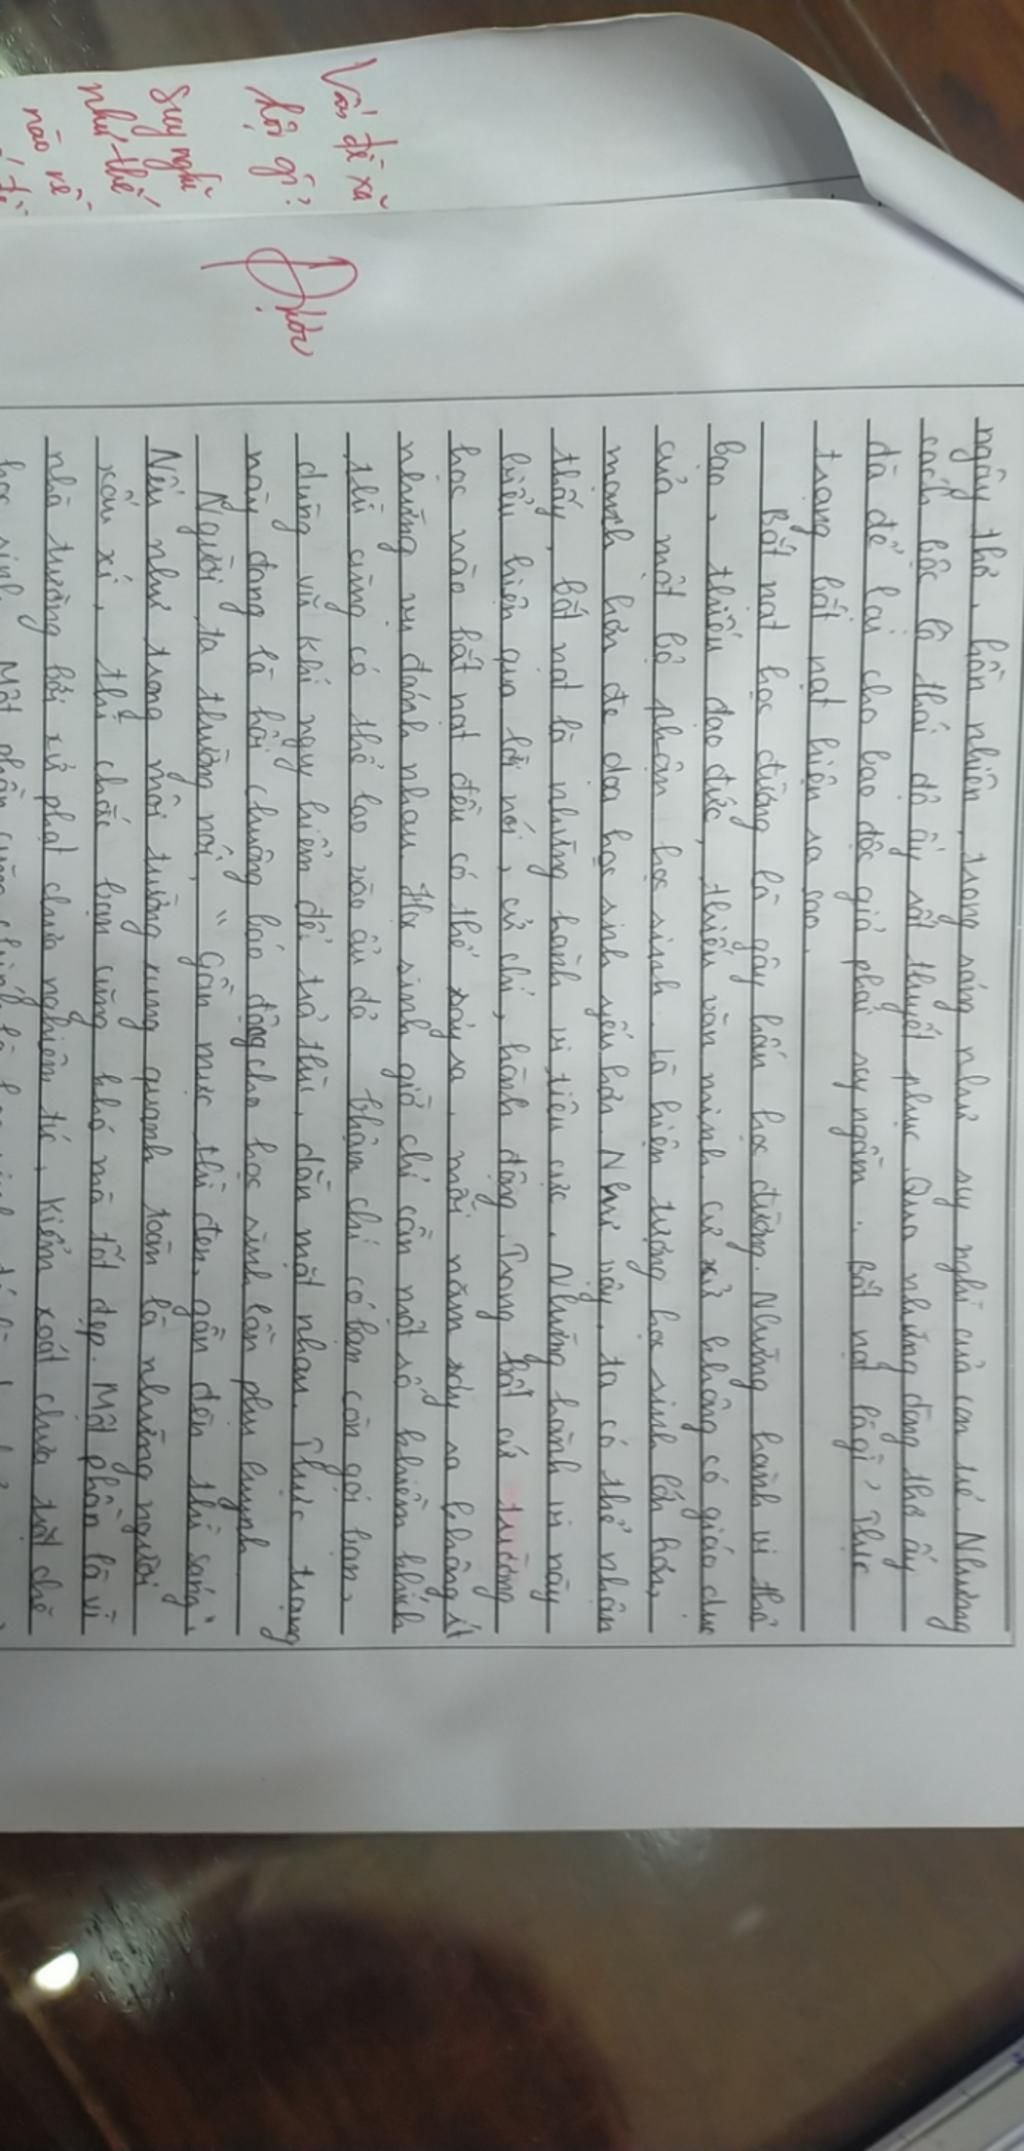 Vấn đề xã
hội gì?
Suy nghĩ
như thế
nào về
Được
ngây thơ, hồn nhiên, trong sáng như suy nghĩ của con trẻ. Nhưng
cách bộc lộ thái độ ấy rất thuyết phục. Qua những dòng thơ ấy
đã để lại cho bao độc giả phải suy ngẫm. Bắt nạt là gì? Thực
trạng bắt nạt hiện ra sao.
Bắt nạt học đường là gây hấn học đường. Những hành vi thô
bạo, thiếu đạo đức, thiếu văn minh. cư xử không có giáo dục
của một bộ phận học sinh. Là hiện tượng học sinh lớn hơn,
mạnh hơn đe doạ học sinh yếu hơn. Như vậy, ta có thể nhận
thấy, bắt nạt là những hành vi tiêu cực. Những hành vi này
biểu hiện qua lời nói, cử chỉ, hành động. Trong bất cứ trường
học nào bắt nạt đều có thể xảy ra, mỗi năm xảy ra không ít
những vụ đánh nhau. Học sinh giờ chỉ cần một số hiềm khích
thì cũng có thể lao vào ẩu đả thậm chí có bạn còn gọi bạn,
dùng vũ khí nguy hiểm để trả thù, dằn mặt nhau. Thực trạng
này đang là hồi chuông báo động cho học sinh lẫn phụ huynh.
Người ta thường nói, " Gần mực thì đen, gần đèn thì sáng",
Nếu như trong môi trường xung quanh toàn là những người
xấu xí, thì chắc bạn cũng khó mà tốt đẹp. Một phần là vì
nhà trường bởi xử phạt chưa nghiêm túc, kiểm xoát chưa chặt chẽ
học sinh. Một phần cũng chính là